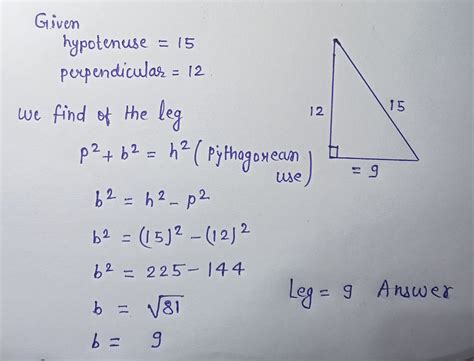 Given
hypotenuse = 15
perpendicular = 12
we find of the leg
p² + b² = h² (pythagorean use)
b² = h² - p²
b² = (15)² - (12)²
b² = 225 - 144
b = √81
b = 9
12
15
= 9
Leg = 9 Answer